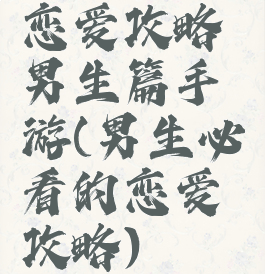 恋爱攻略
男生篇手
游(男生必
看的恋爱
攻略)